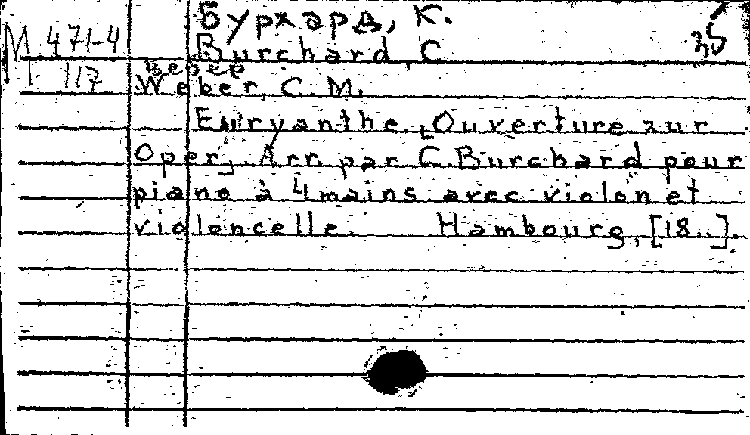 Бурхард, К.
35
M 471-4
Burchard, C.
M 117
Вебер
Weber, C. M.
Euryanthe. [Ouverture zur
Oper]. Arr. par C. Burchard pour
piano à 4 mains avec violon et
violoncelle. Hambourg, [18..].